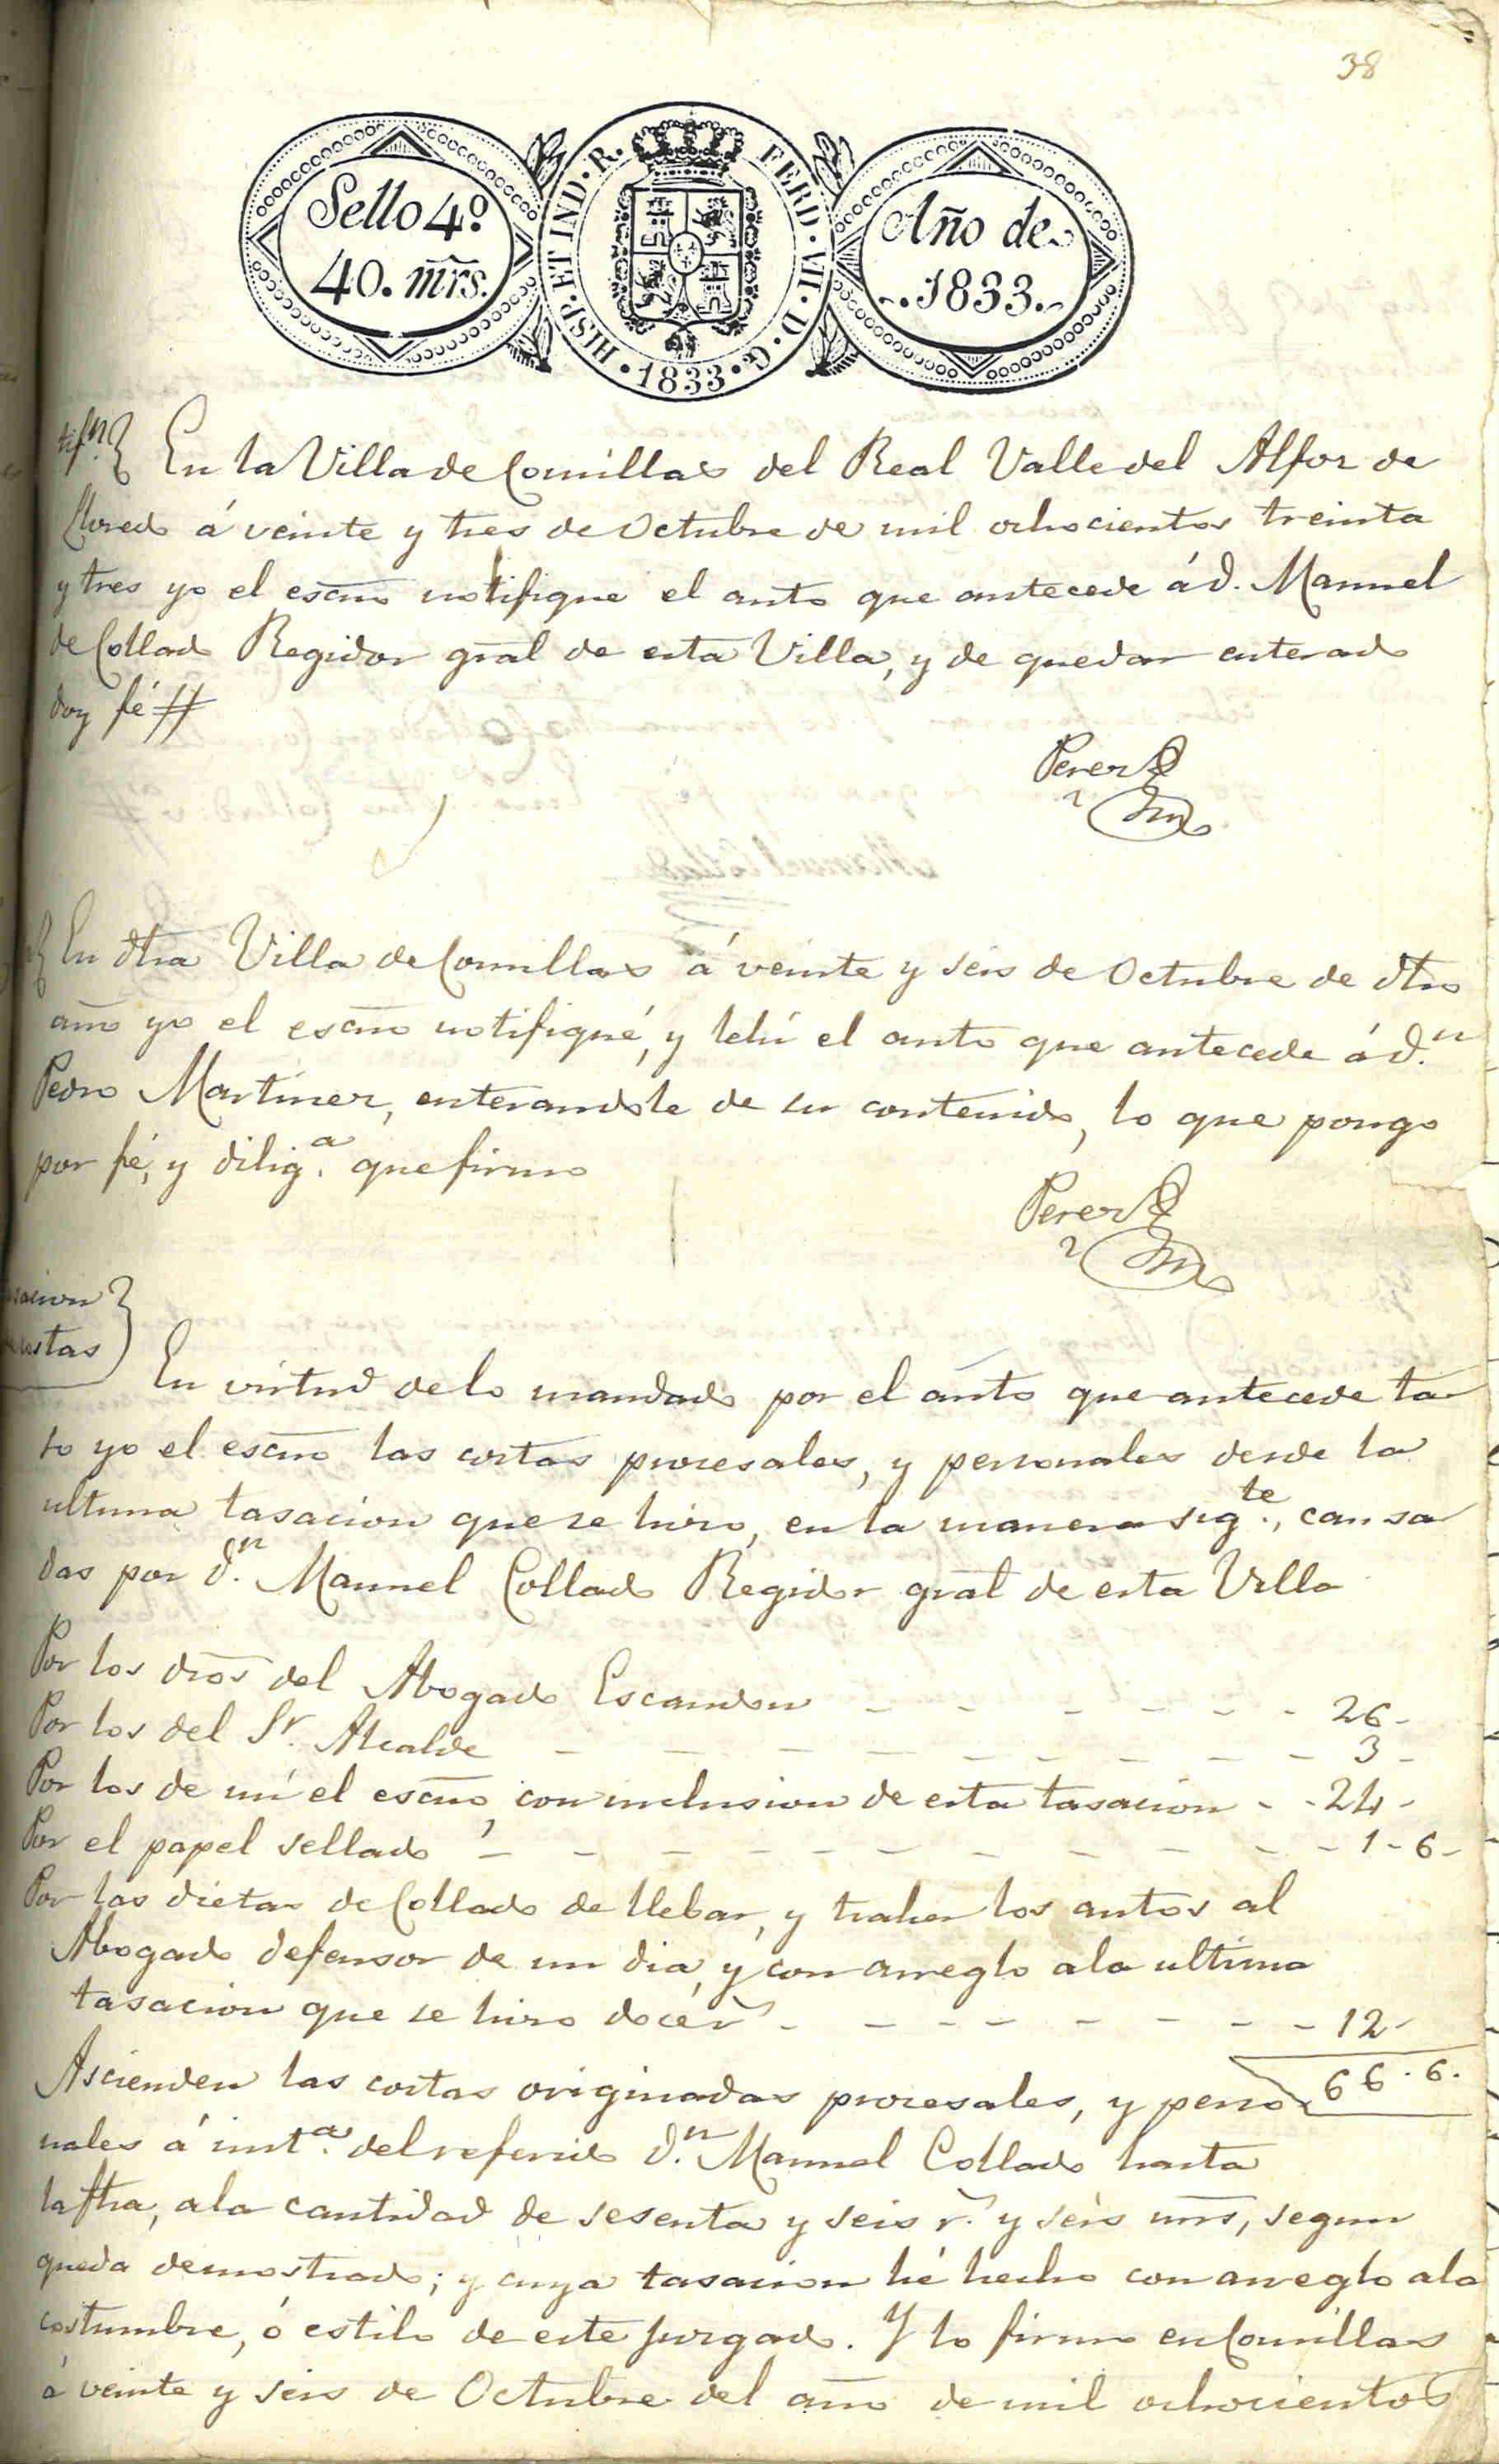 38
Sello 4º
40. mrs.
HISP. ET IND. R. FERD. VII. D. G.
1833
Año de
1833.
En la Villa de Comillas del Real Valle del Alfoz de
Lloredo á veinte y tres de Octubre de mil ochocientos treinta
y tres yo el escno notifique el auto que antecede á d. Manuel
de Collado Regidor gral de esta Villa, y de quedar enterado
doy fé
Perez
En dha Villa de Comillas á veinte y seis de Octubre de dho
año yo el escno notifiqué, y lehí el auto que antecede á d.n
Pedro Martinez, enterandole de su contenido, lo que pongo
por fé, y dilig.a que firmo
Perez
sacion
costas
En virtud de lo mandado por el auto que antecede ta
so yo el escno las costas procesales, y personales desde la
ultima tasacion que se hizo, en la manera sig.te, causa
das por d.n Manuel Collado Regidor gral de esta Villa
Por los dros del Abogado Escandon - - - - - - 26-
Por los del Sr. Alcalde - - - - - - - - - 3-
Por los de mí el escno, con inclusion de esta tasacion - - 24-
Por el papel sellado - - - - - - - - - - - 1-6-
Por las dietas de Collado de llebar, y traher los autos al
Abogado defensor de un dia, y con arreglo a la ultima
tasacion que se hizo doce r.s - - - - - - - - 12-
66.6.
Ascienden las costas originadas procesales, y perso
nales á inst.a del referido d.n Manuel Collado hasta
la fha, a la cantidad de sesenta y seis r.s y seis mrs, segun
queda demostrado; y cuya tasacion hé hecho con arreglo a la
costumbre, ó estilo de este Juzgado. Y lo firmo en Comillas
á veinte y seis de Octubre del año de mil ochocientos